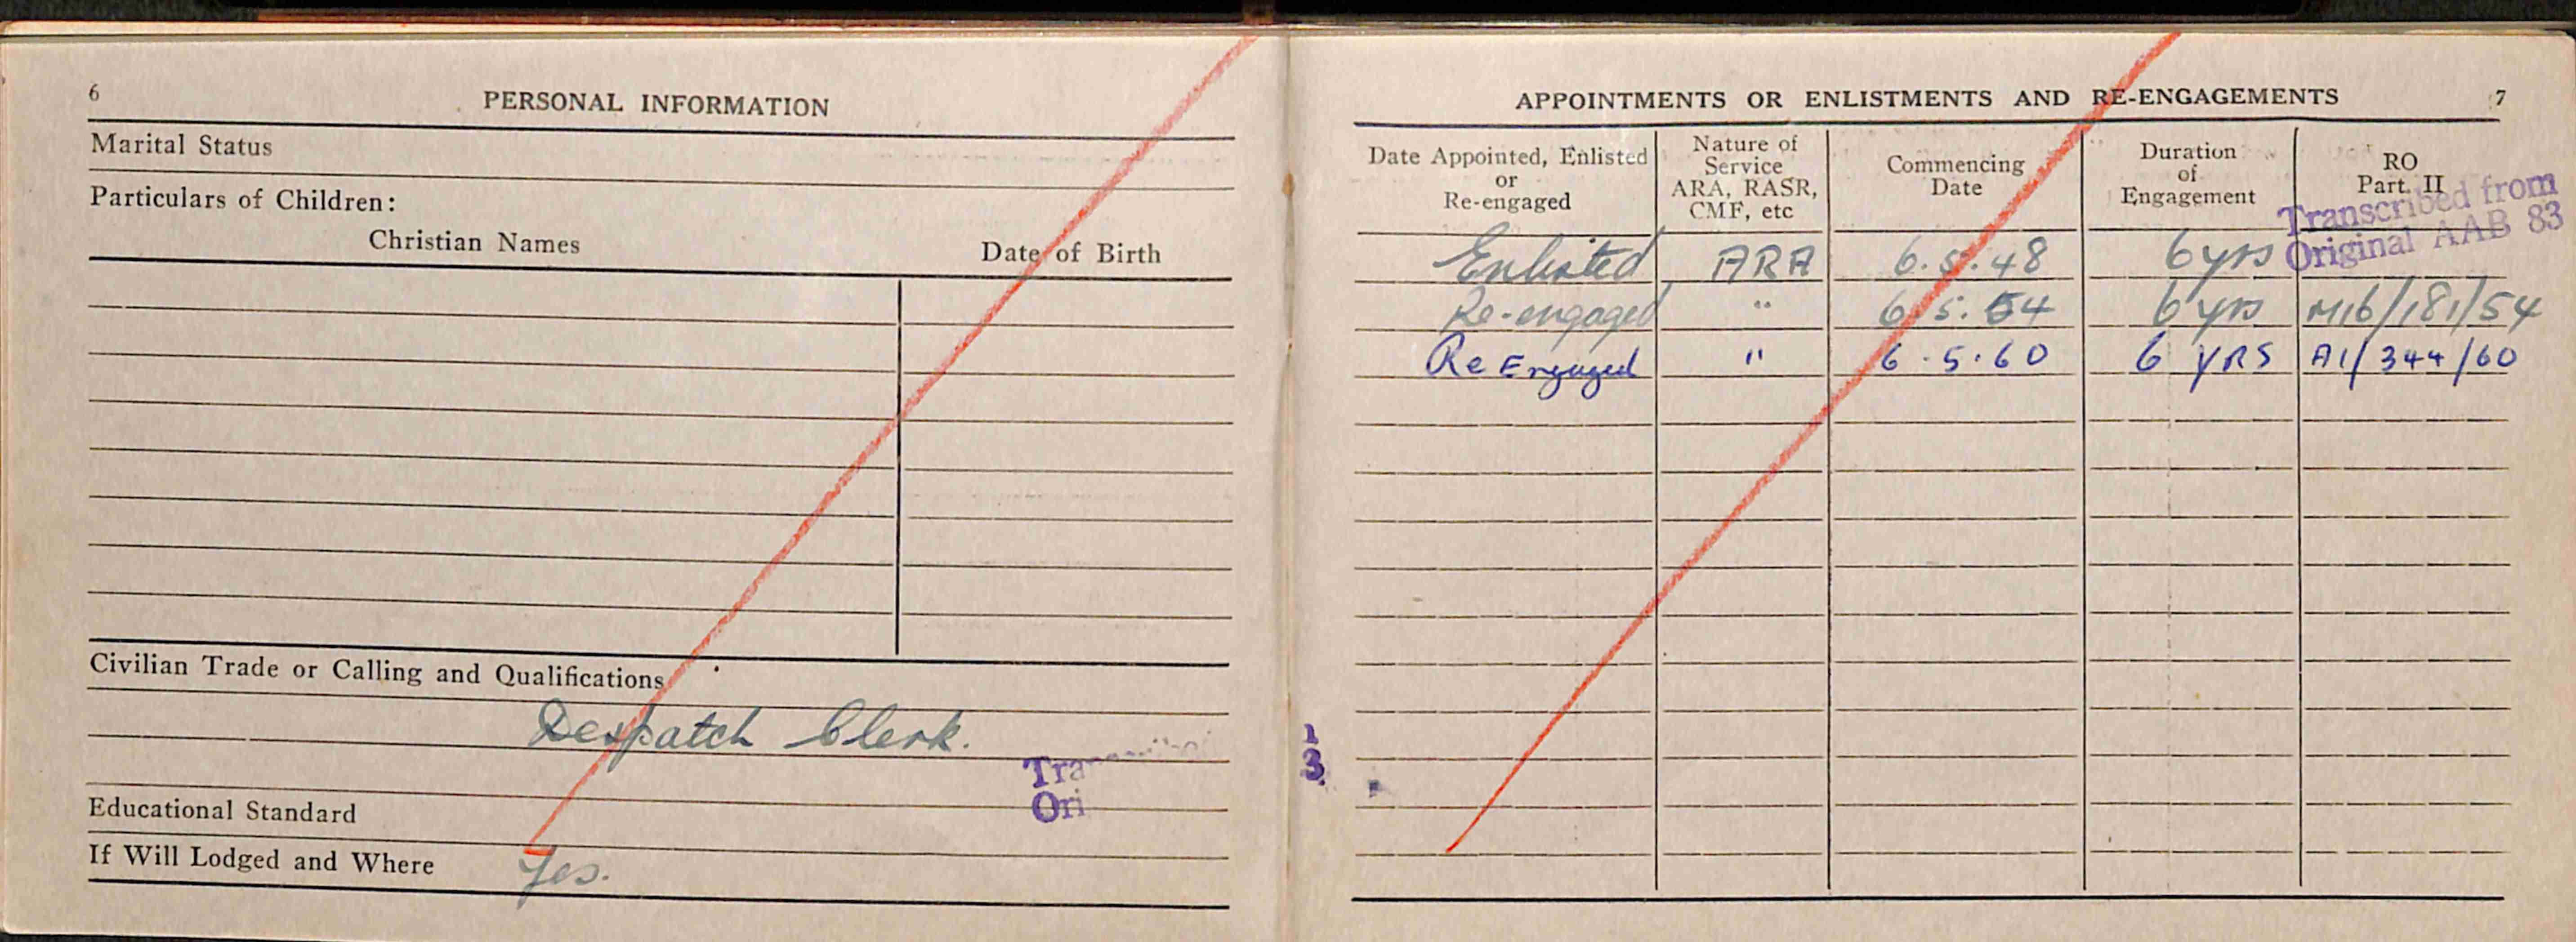 6
PERSONAL INFORMATION
Marital Status
Particulars of Children:
Christian Names Date of Birth
Civilian Trade or Calling and Qualifications
Despatch Clerk.
Tra
Ori
Educational Standard
If Will Lodged and Where Yes.
1
3
APPOINTMENTS OR ENLISTMENTS AND RE-ENGAGEMENTS 7
Date Appointed, Enlisted
or
Re-engaged
Nature of
Service
ARA, RASR,
CMF, etc
Commencing
Date
Duration
of
Engagement
RO
Part. II
Transcribed from
Original AAB 83
Enlisted ARA 6.5.48 6 yrs
Re-engaged " 6.5.54 6 yrs M16/181/54
Re Engaged " 6.5.60 6 YRS A1/344/60